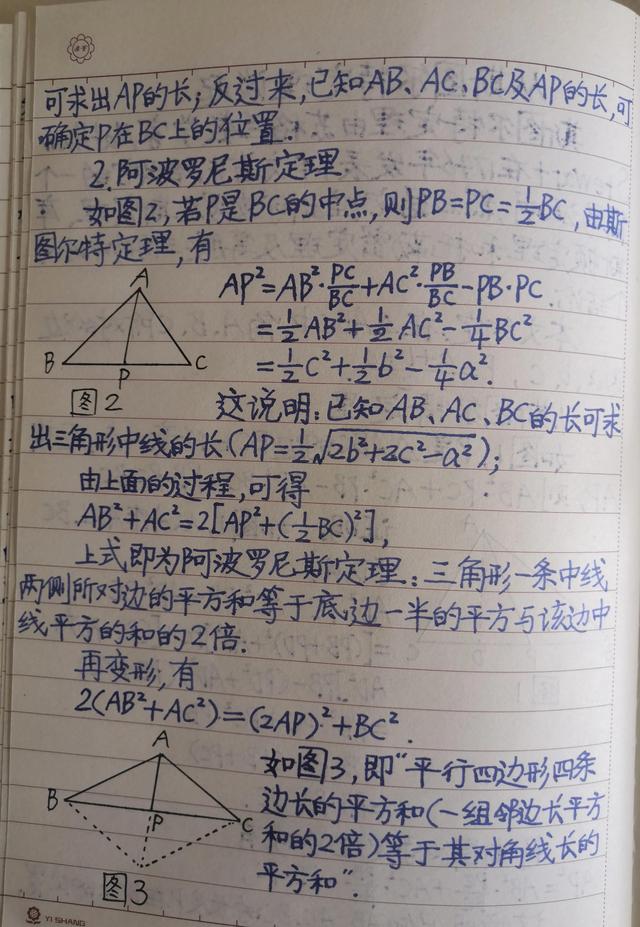 可求出AP的长;反过来,已知AB、AC、BC及AP的长,可
确定P在BC上的位置.
2.阿波罗尼斯定理
如图2,若P是BC的中点,则PB=PC=½BC,由斯
图尔特定理,有
AP²=AB²·PC/BC+AC²·PB/BC-PB·PC
=½AB²+½AC²-¼BC²
=½c²+½b²-¼a².
A
B
P
C
图2
这说明:已知AB、AC、BC的长可求
出三角形中线的长(AP=½√(2b²+2c²-a²));
由上面的过程,可得
AB²+AC²=2[AP²+(½BC)²],
上式即为阿波罗尼斯定理:三角形一条中线
两侧所对边的平方和等于底边一半的平方与该边中
线平方的和的2倍.
再变形,有
2(AB²+AC²)=(2AP)²+BC².
A
B
P
C
图3
如图3,即“平行四边形四条
边长的平方和(一组邻边长平方
和的2倍)等于其对角线长的
平方和”.
YI SHANG